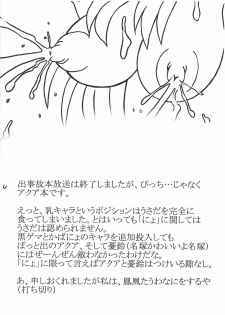 出事放本放送は終了しましたが、ぴっち…じゃなく
アクア本です。
えっと、乳キャラというポジションはうさだを完全に
食ってしまいました。とはいっても「にょ」に関しては
うさだは認められません。
黒ゲマとかぱにょのキャラを追加投入しても
ぽっと出のアクア、そして憂鈴(名塚かわいいよ名塚)
にはぜーんぜん敵わなかったわけだな。
「にょ」に限って言えばアクアと憂鈴はつけいる隙なし。
あ、申しおくれましたが私は、鳳凰たうわなにをするや
(打ち切り)